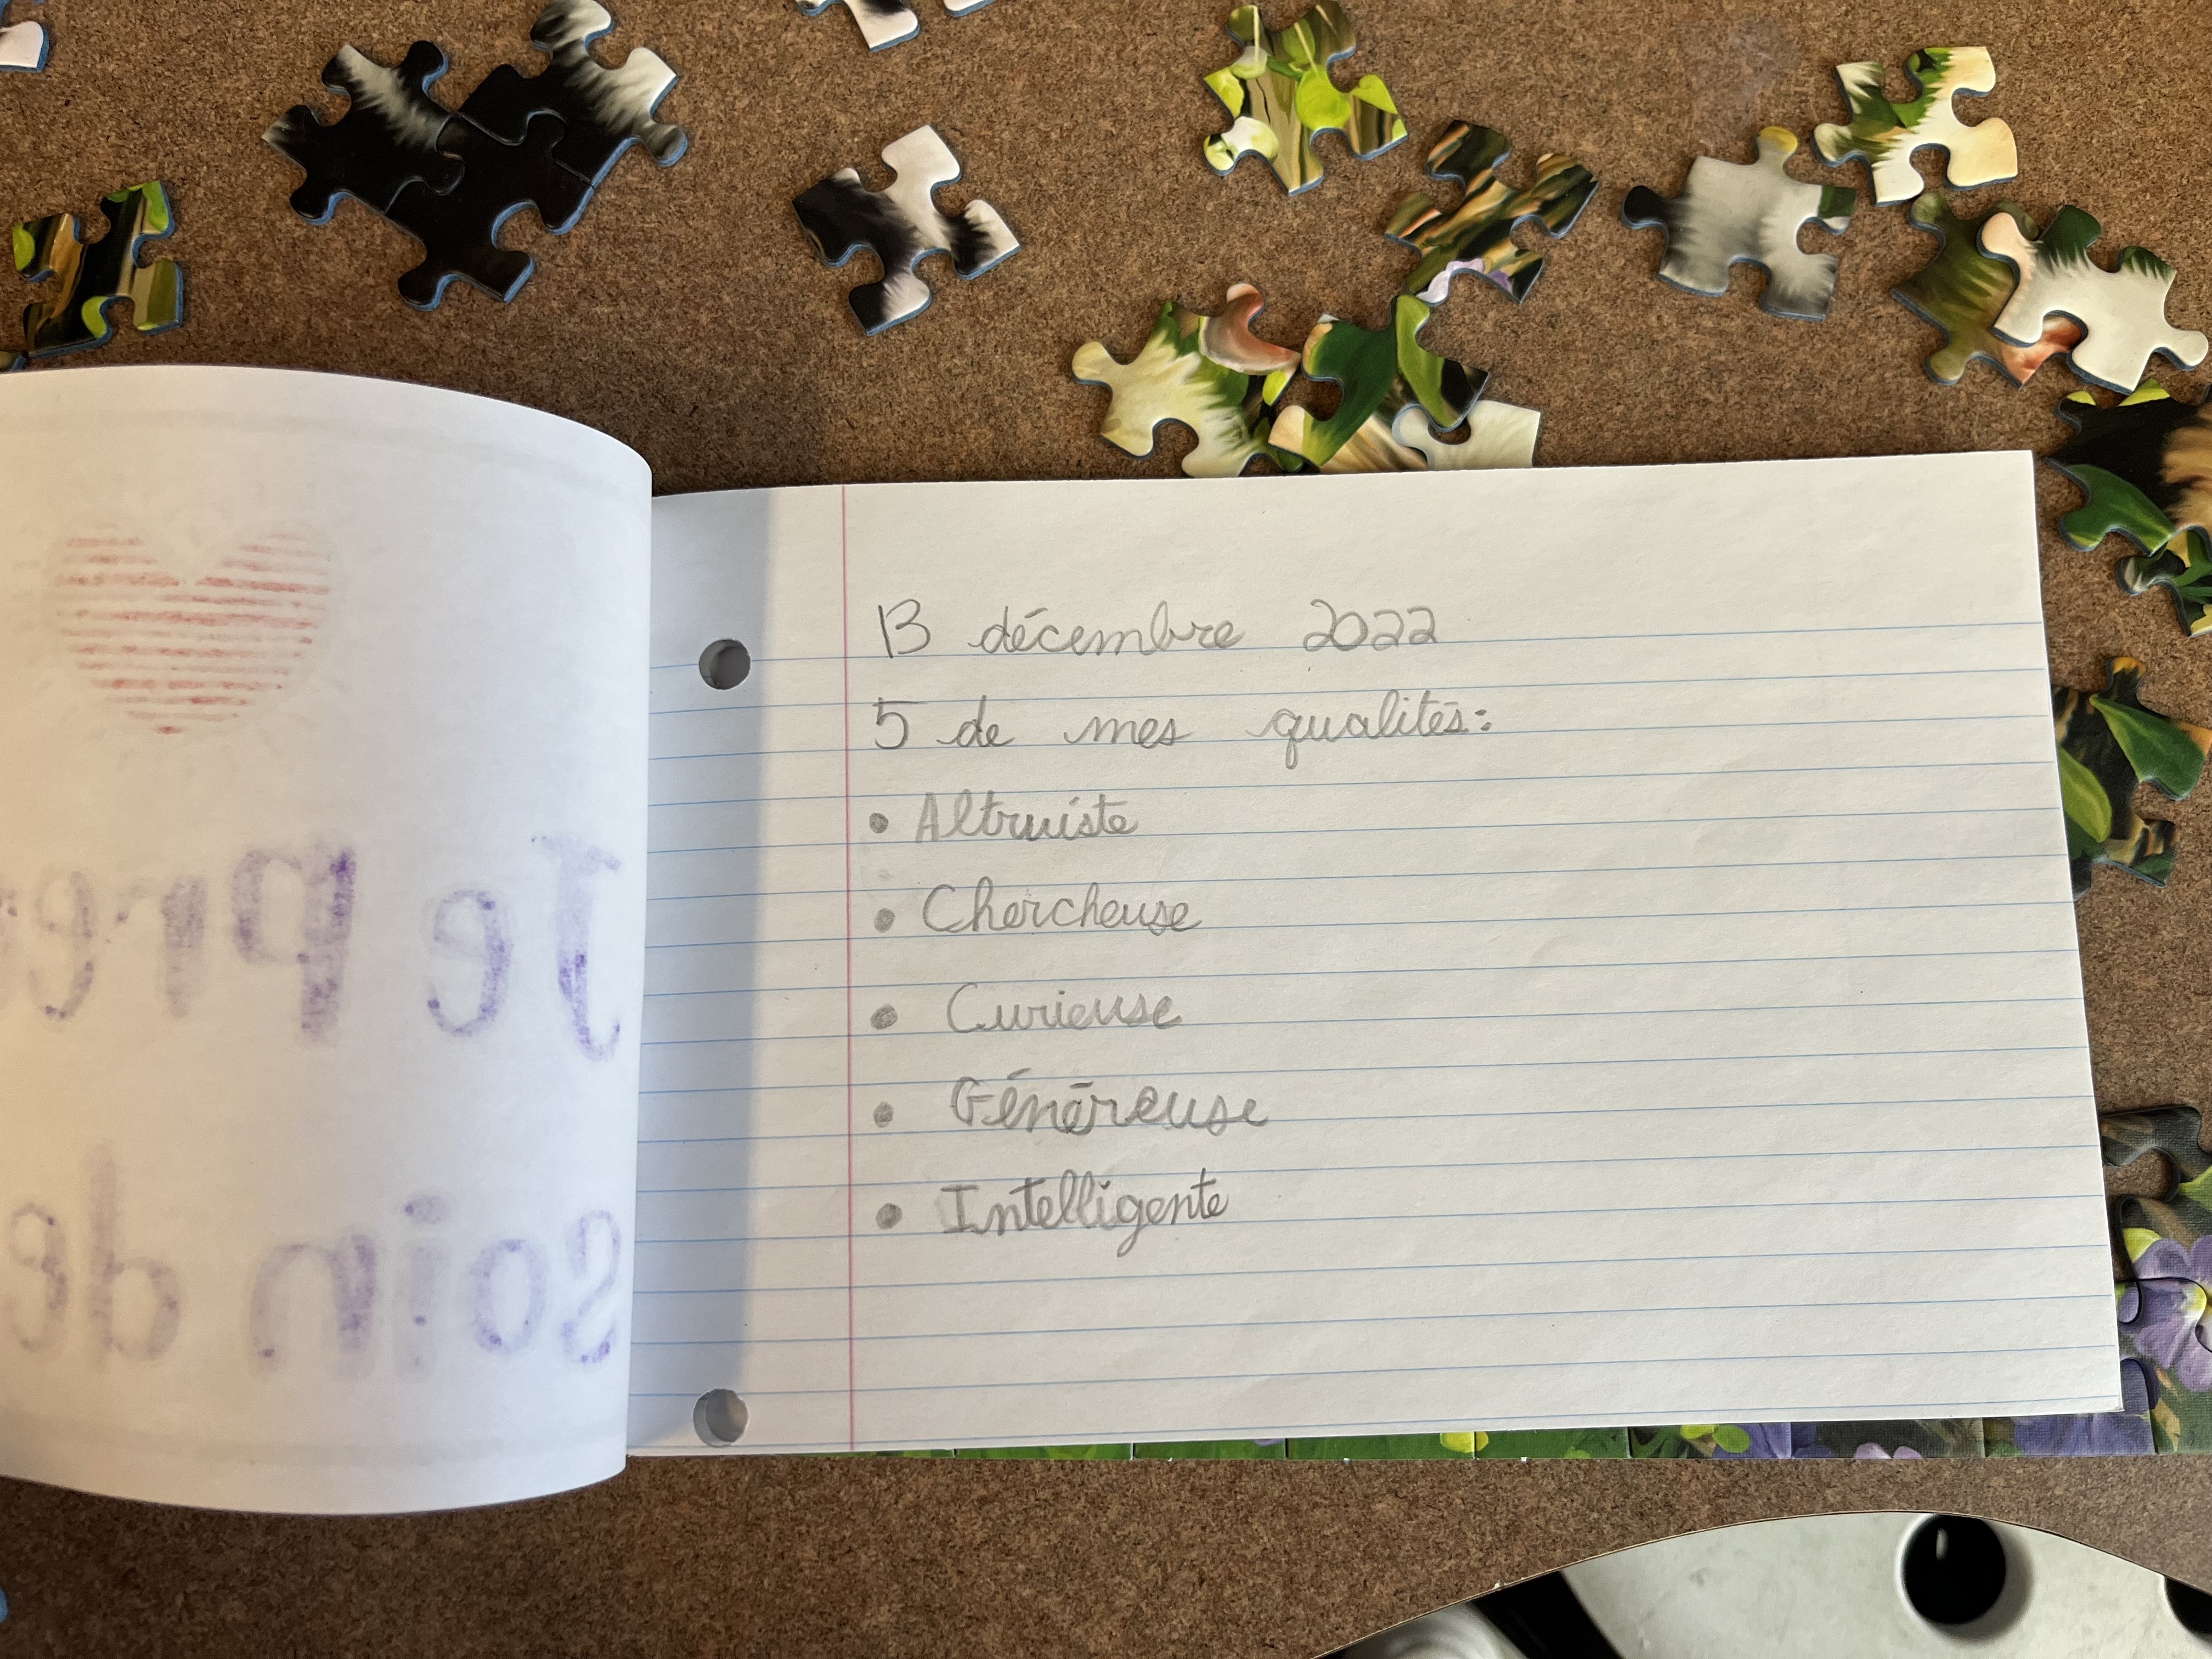 Je pre
soin de
13 décembre 2022
5 de mes qualités:
• Altruiste
• Chercheuse
• Curieuse
• Généreuse
• Intelligente